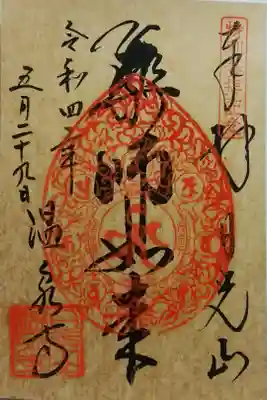 奉拝 日光山
薬師如来
令和四年
五月二十九日 温泉寺